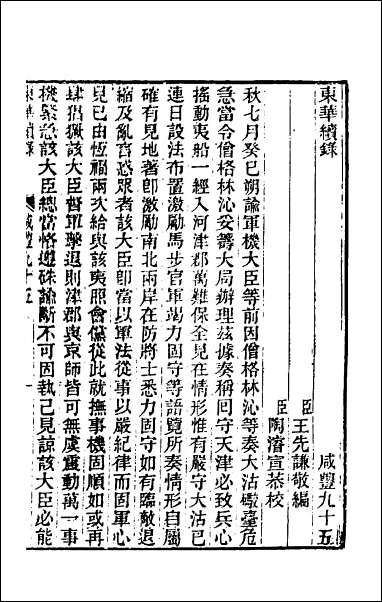 東華續錄　咸豐九十五
臣王先謙敬編
臣陶濬宣恭校
秋七月癸巳朔諭軍機大臣等前因僧格林沁等奏大沽礮臺危
急當令僧格林沁妥籌大局辦理茲據奏稱囘守天津必致兵心
搖動夷船一經入河津郡萬難保全見在情形惟有嚴守大沽已
連日設法布置激勵馬步官軍竭力固守等語覽所奏情形自屬
確有見地著卽激勵南北兩岸在防將士悉力固守如有臨敵退
縮及亂言惑眾者該大臣卽當以軍法從事以嚴紀律而固軍心
見已由恆福兩次給與該夷照會儻從此就撫事機固順如或再
肆猖獗該大臣督軍擊退則津郡與京師皆可無虞震動萬一事
機緊急該大臣總當恪遵硃諭斷不可固執己見諒該大臣必能
東華續錄　咸豐九十五　一